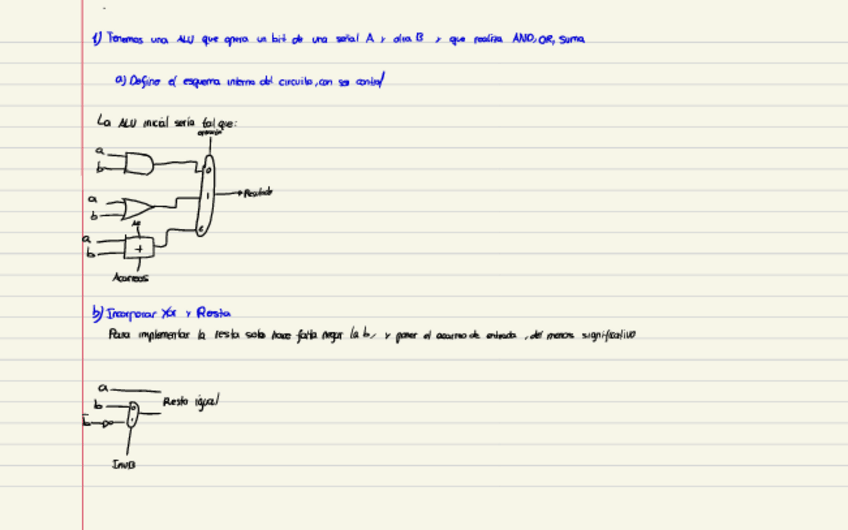 1) Tenemos una ALU que opera un bit de una señal A y otra B y que realiza AND, OR, Suma
a) Define el esquema interno del circuito, con su control
La ALU inicial sería tal que:
operación
a
b
0
a
b
1
Resultado
a
b
+
2
Acarreos
b) Incorporar Xor y Resta
Para implementar la resta solo hace falta negar la b, y poner el acarreo de entrada, del menos significativo
a
b
0
Resto igual
b
1
InvB